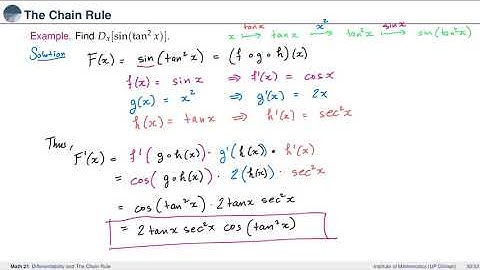 The Chain Rule
Example. Find Dₓ[sin(tan² x)].
x ⟼ tan x ⟼ tan²x ⟼ sin(tan²x)
tanx x² sinx
Solution
F(x) = sin(tan²x) = (f ∘ g ∘ h)(x)
f(x) = sin x ⇒ f'(x) = cos x
g(x) = x² ⇒ g'(x) = 2x
h(x) = tan x ⇒ h'(x) = sec²x
Thus,
F'(x) = f'(g∘h(x)) · g'(h(x)) · h'(x)
= cos(g∘h(x)) · 2(h(x)) · sec²x
= cos(tan²x) · 2tanx sec²x
= 2 tanx sec²x cos(tan²x)
Math 21: Differentiability and The Chain Rule Institute of Mathematics (UP Diliman) 30/33